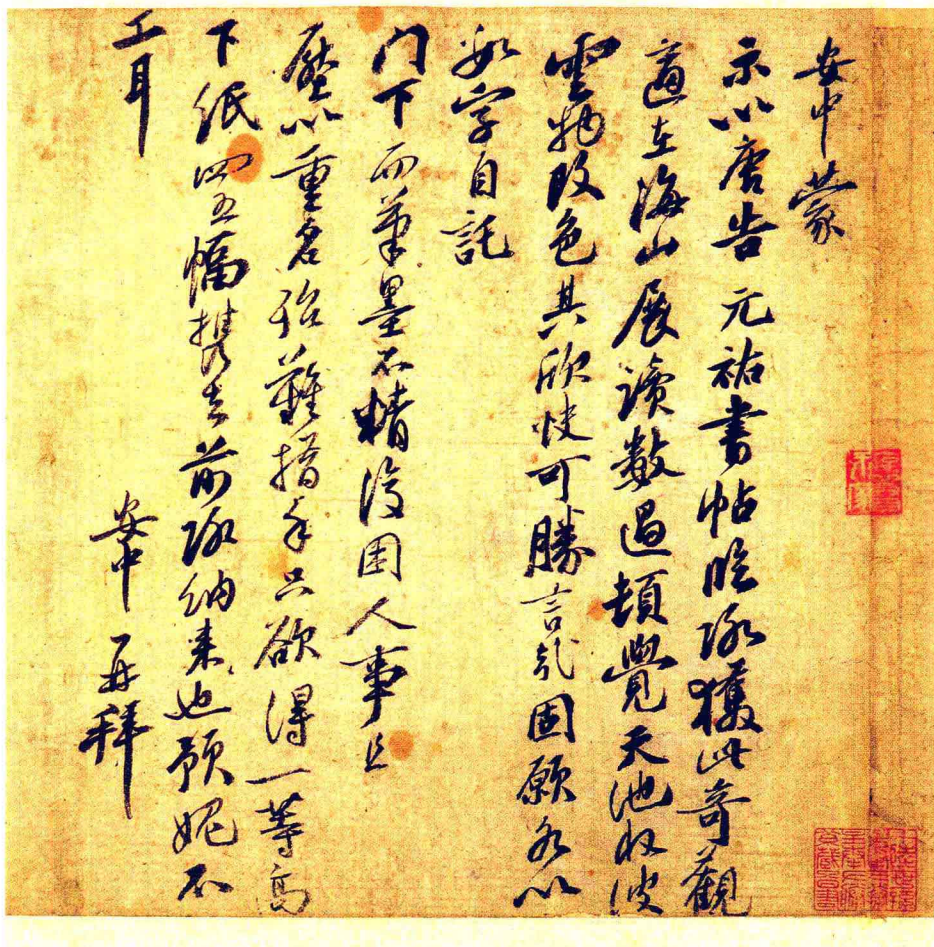 安中蒙
示以唐告元祐書帖臨流獲此奇觀
適在海山展讀數過頓覺天池收波
雲物改色其欣快可勝言哉固願各以
數字自託
门下而筆墨不精復困人事且
壓以重名殆難措手只欲得一等高
下纸四五幅携去前派納来也預媿不
工耳
安中再拜